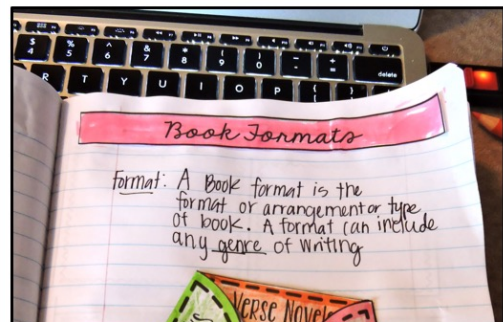 $ 4
% 5
^ 6
& 7
* 8
( 9
) 0
- _
+ =
delete
R T Y U I O P { [ } ]
Book Formats
Format: A Book format is the
format or arrangement or type
of book. A format can include
any genre of writing
VERSE NOVEL